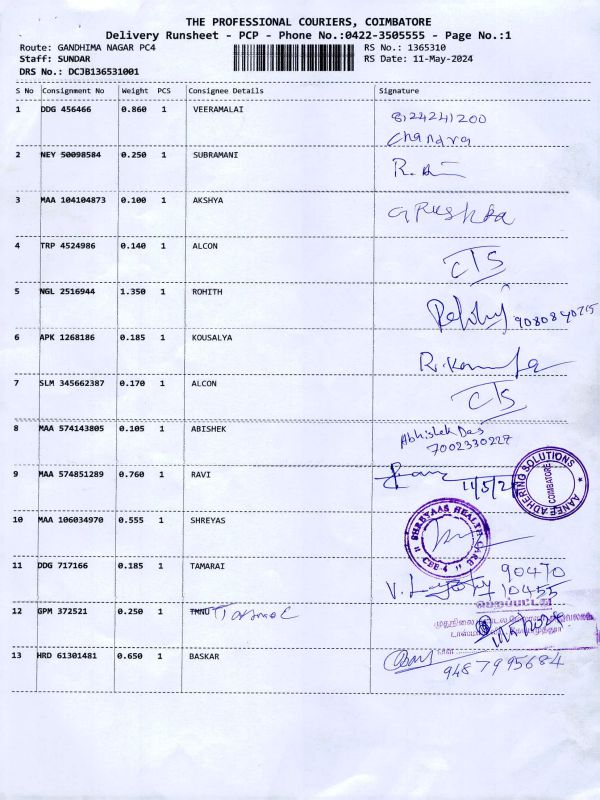 THE PROFESSIONAL COURIERS, COIMBATORE
Delivery Runsheet - PCP - Phone No.:0422-3505555 - Page No.:1
Route: GANDHIMA NAGAR PC4 RS No.: 1365310
Staff: SUNDAR RS Date: 11-May-2024
DRS No.: DCJB136531001
S No Consignment No Weight PCS Consignee Details Signature
1 DDG 456466 0.860 1 VEERAMALAI 8124241200
Chandra
2 NEY 50098584 0.250 1 SUBRAMANI R.
3 MAA 104104873 0.100 1 AKSHYA
4 TRP 4524986 0.140 1 ALCON CTS
5 NGL 2516944 1.350 1 ROHITH 9080840215
6 APK 1268186 0.185 1 KOUSALYA
7 SLM 345662387 0.170 1 ALCON CTS
8 MAA 574143805 0.105 1 ABISHEK Abhishek Das
7002330227
9 MAA 574851289 0.760 1 RAVI 11/5/24
AANEE ADHERING SOLUTIONS COIMBATORE
10 MAA 106034970 0.555 1 SHREYAS
SHREYAAS HEALTH CARE CBE-4
11 DDG 717166 0.185 1 TAMARAI 90470
10455
12 GPM 372521 0.250 1 TMNU
13 HRD 61301481 0.650 1 BASKAR 9487995684